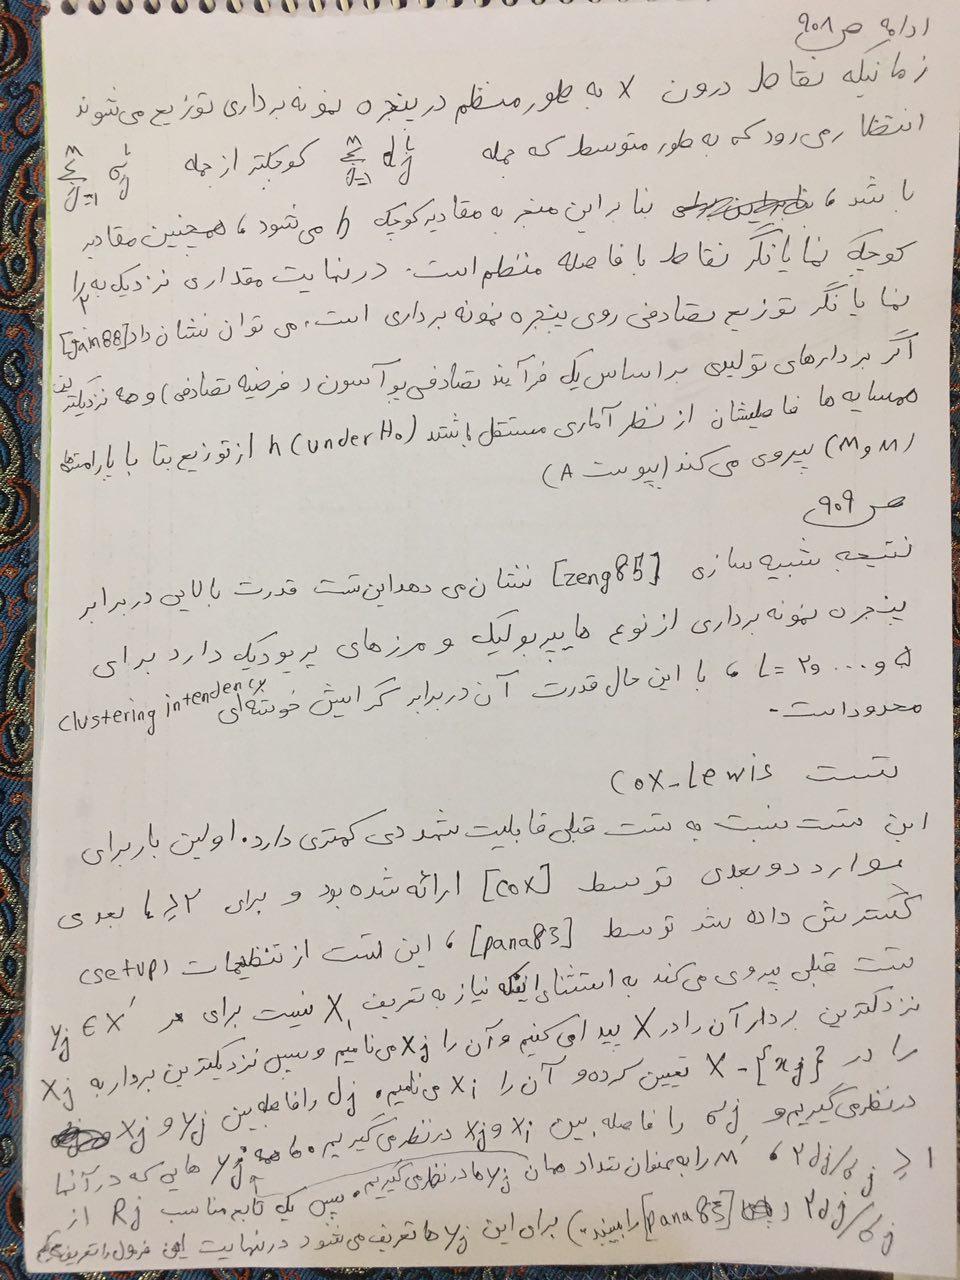 ادامه ص ۹۰۸
زمانیکه نقاط درون X به طور منظم در پنجره نمونه برداری توزیع می شوند
انتظار می رود که به طور متوسط که جمله Σ_{j=1}^{M} d_j^l کوچکتر از جمله Σ_{j=1}^{M} σ_j^l
باشد، بنابراین منجر به مقادیر کوچک h می شود، همچنین مقادیر
کوچک نمایانگر نقاط با فاصله منظم است. در نهایت مقداری نزدیک به ۱/۲ را
نمایانگر توزیع تصادفی روی پنجره نمونه برداری است. می توان نشان داد [Jain88]
اگر بردارهای تولیدی بر اساس یک فرآیند تصادفی پوآسون (فرضیه تصادفی) و همه نزدیکترین
همسایه ها فاصلیشان از نظر آماری مستقل باشند h (under H₀) از توزیع بتا با پارامترهای
(M و M) پیروی می کند (پیوست A)
ص ۹۰۹
نتیجه شبیه سازی [zeng85] نشان می دهد این تست قدرت بالایی در برابر
پنجره نمونه برداری از نوع هایپربولیک و مرزهای پریودیک دارد برای
۵ و ... و ۲ = L، با این حال قدرت آن در برابر گرایش خوشه ای clustering intendency
محدود است.
تست Cox-Lewis
این تست نسبت به تست قبلی قابلیت شهودی کمتری دارد. اولین بار برای
موارد دو بعدی توسط [cox] ارائه شده بود و برای L ≥ ۲ بعدی
گسترش داده شد توسط [pana83]، این تست از تنظیمات (setup)
تست قبلی پیروی می کند به استثنای اینکه نیاز به تعریف X₁ نیست برای هر y_j ∈ X′
نزدکترین بردار آن را در X پیدا می کنیم و آن را x_j می نامیم و سپس نزدیکترین بردار به x_j
را در X - {x_j} تعیین کرده و آن را x_i می نامیم. d_j را فاصله بین y_j و x_j
در نظر می گیریم و σ_j را فاصله بین x_i و x_j در نظر می گیریم. ما همه y_j هایی که در آنها
۲d_j/σ_j ≥ ۱، M′ را به عنوان تعداد همان y_j ها در نظر می گیریم. سپس یک تابع مناسب R_j از
۲d_j/σ_j ([pana83] را ببینید) برای این y_j ها تعریف می شود در نهایت این فرمول را تعریف می کنیم